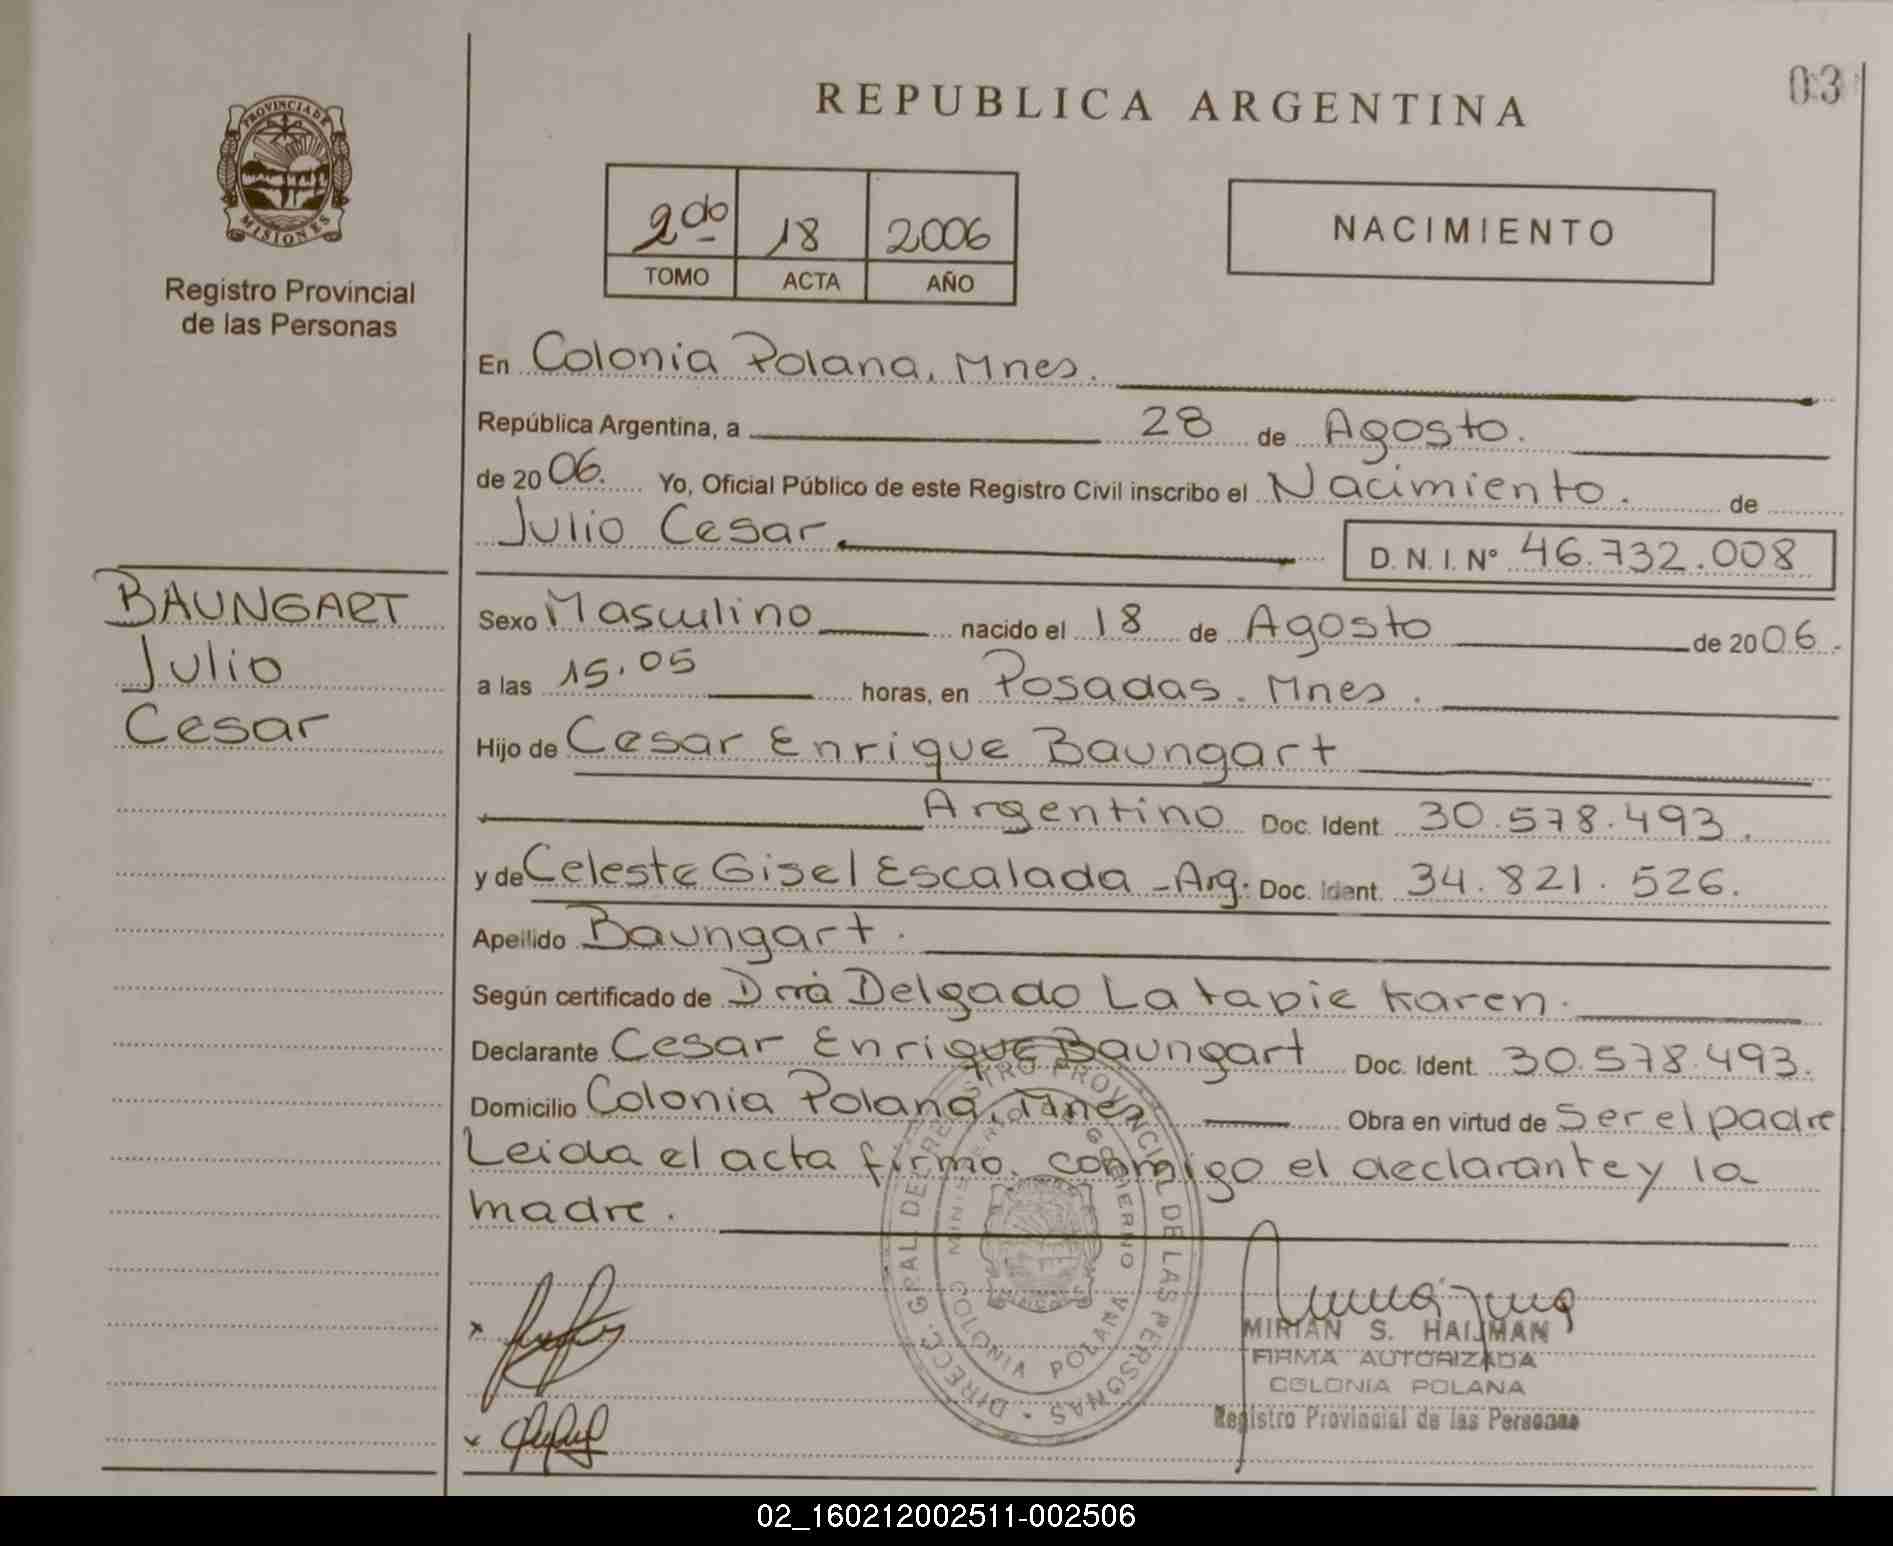 03
PROVINCIA DE
MISIONES
Registro Provincial
de las Personas
REPUBLICA ARGENTINA
2do 18 2006
TOMO ACTA AÑO
NACIMIENTO
En Colonia Polana, Mnes.
República Argentina, a 28 de Agosto.
de 2006. Yo, Oficial Público de este Registro Civil inscribo el Nacimiento. de
Julio Cesar
D. N. I. Nº 46.732.008
BAUNGART
Julio
Cesar
Sexo Masculino nacido el 18 de Agosto de 2006.
a las 15.05 horas, en Posadas. Mnes.
Hijo de Cesar Enrique Baungart
Argentino Doc. Ident. 30.578.493.
y de Celeste Gisel Escalada - Arg. Doc. Ident. 34.821.526.
Apellido Baungart.
Según certificado de Dra Delgado Latapie Karen.
Declarante Cesar Enrique Baungart Doc. Ident. 30.578.493.
Domicilio Colonia Polana, Mnes Obra en virtud de Ser el padre
Leida el acta firmo, conmigo el declarante y la
madre.
DIRECC. GRAL DEL REGISTRO PROVINCIAL DE LAS PERSONAS
MINISTERIO DE GOBIERNO
COLONIA POLANA
MIRIAN S. HAIJMAN
FIRMA AUTORIZADA
COLONIA POLANA
Registro Provincial de las Personas
02_160212002511-002506